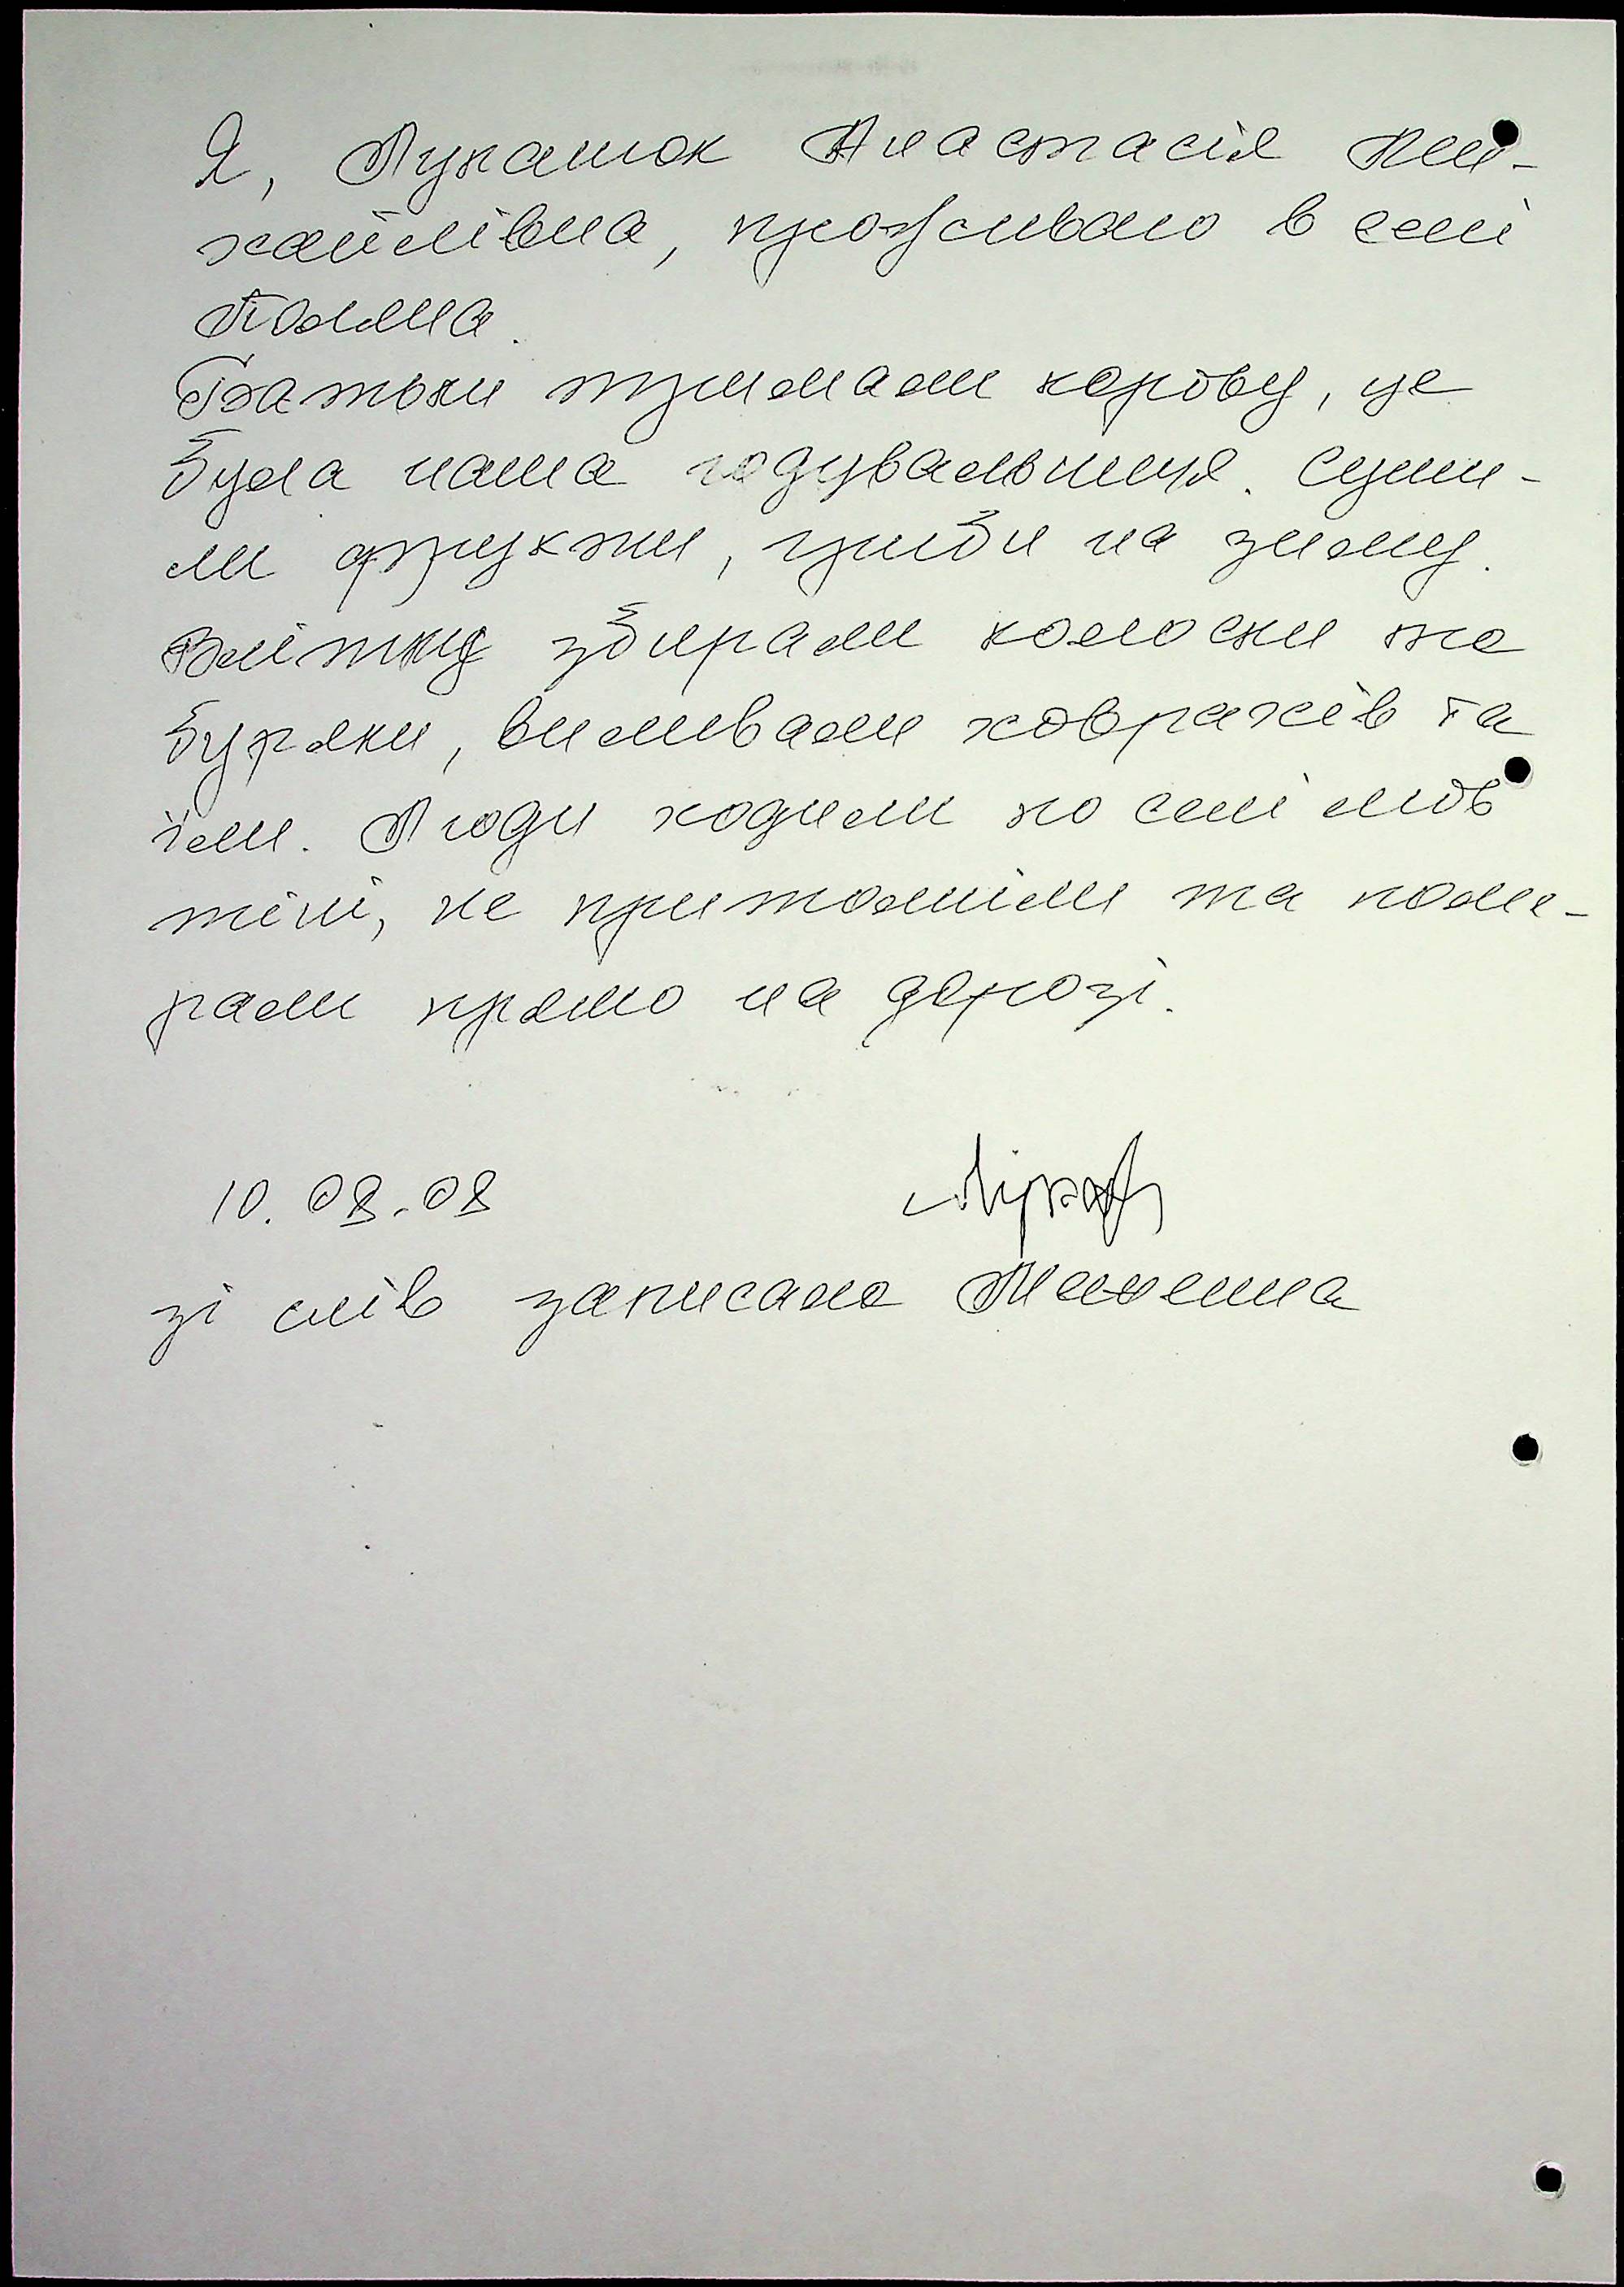 Я, Лукашок Анастасія Ми-
хайлівна, проживаю в селі
Поляна.
Батьки тримали корову, це
була наша годувальниця. Суши-
ли фрукти, гриби на зиму.
Влітку збирали колоски та
буряки, виливали ховрахів та
їли. Люди ходили по селі мов
тіні, не притомніли та поми-
рали прямо на дорозі.
10.08.08
зі слів записала